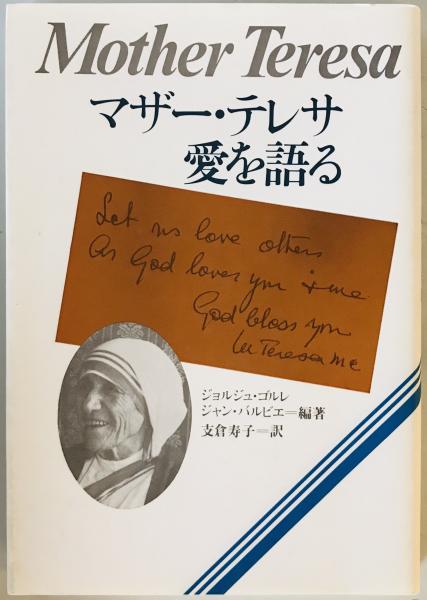 Mother Teresa
マザー・テレサ
愛を語る
Let us love others
as God loves you & me
God bless you
M Teresa MC
ジョルジュ・ゴルレ
ジャン・バルビエ=編著
支倉寿子=訳